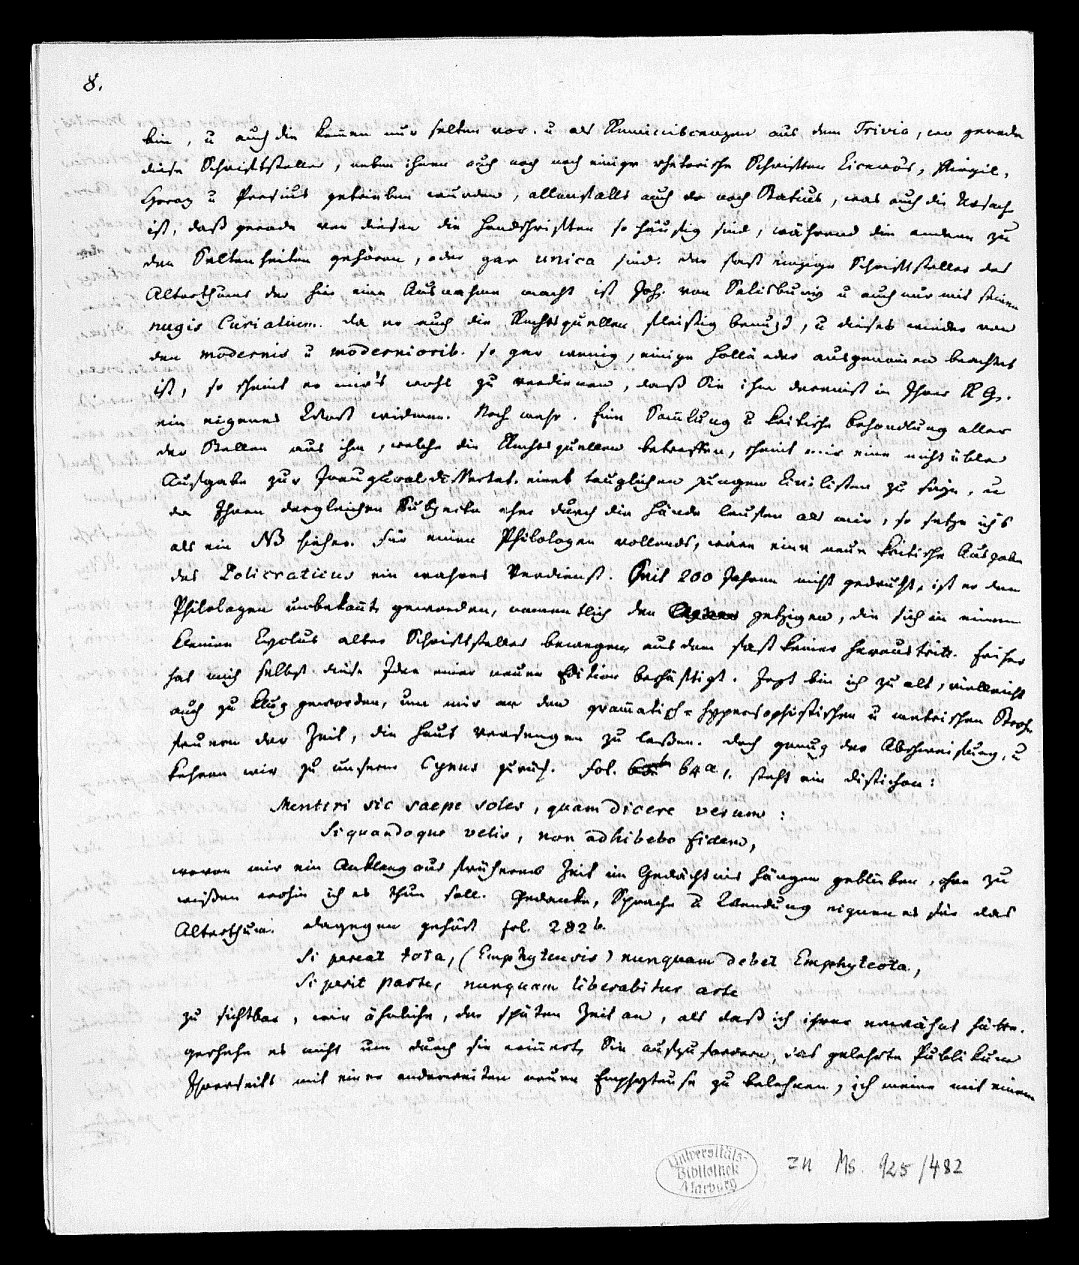 8.
hin, u auch die kom̅en nur selten vor. u als Reminiscenzen aus dem Trivio, wo gerade
diese Schriftsteller, neben ihnen auch noch einige rhetorische Schriften Cicero's, Virgil,
Horaz u Persius getrieben wurden, allenfalls auch noch Statius, was auch die Ursach
ist, daß gerade von diesen die Handschriften so häufig sind, während die andern zu
den Seltenheiten gehören, oder gar unica sind. der fast einzige Schriftsteller des
Alterthums der hier eine Ausnahme macht ist Joh. von Salisbury u auch nur mit seinen
nugis Curialium. da er auch die Rechtsquellen fleißig benuzt, u dieses wieder von
den modernis u modernioribus so gar wenig, einige Hollænder ausgenom̅en beachtet
ist, so scheint er mir's wohl zu verdienen, daß Sie ihm dereinst in Ihrer R G.
ein eigenes Wort widmen. Noch mehr. Eine Sam̅lung u kritische Behandlung aller
der Stellen aus ihm, welche die Rechtsquellen betreffen, scheint mir eine nicht üble
Aufgabe zur Inauguraldissertat. eines tauglichen jungen Civilisten zu seyn, u
da Ihnen dergleichen Subjecte eher durch die Hände laufen als mir, so setze ich's
als ein NB hieher. Für einen Philologen vollends, wäre eine neue kritische Ausgabe
des Policraticus ein wahres Verdienst. Seit 200 Jahren nicht gedruckt, ist er den
Philologen unbekan̅t geworden, namentlich den jetzigen, die sich in einem
kleinen Cyclus alter Schriftsteller bewegen, aus dem fast keiner heraustritt. Früher
hat mich selbst diese Idee einer neuen Edition beschäftigt. Jezt bin ich zu alt, vielleicht
auch zu klug geworden, um mir an den gram̅atisch-hypersophistischen u metrischen
feuern der Zeit, die Haut versengen zu laßen. doch genug der Abschweifung, u
kehren wir zu unserm Cynus zurück. fol. 64a, steht ein distichon:
Mentiri sic saepe soles, quam dicere verum:
Si quandoque velis, non adhibebo fidem,
wovon mir ein Anklang aus früherer Zeit im Gedächtnis hängen geblieben, ohne zu
wißen wohin ich es thun soll. Gedanke, Sprache u Wendung eignen es für das
Alterthum. dagegen gehört fol. 282b.
Si pereat tota, (Emphyteusis) nunquam debet Emphyteota,
Si perit parte, nunquam liberabitur arte
zu sichtbar, wie ähnliche, der späten Zeit an, als daß ich ihrer erwähnt hätte.
geschehe es nicht um durch sie erin̅ert, Sie aufzufordern, das gelehrte Publikum
Ihrerseits mit einer anderweiten neuen Emphyteuse zu belehnen, ich meine mit einem
Universitäts-
Bibliothek
Marburg
zu Ms. 925/482